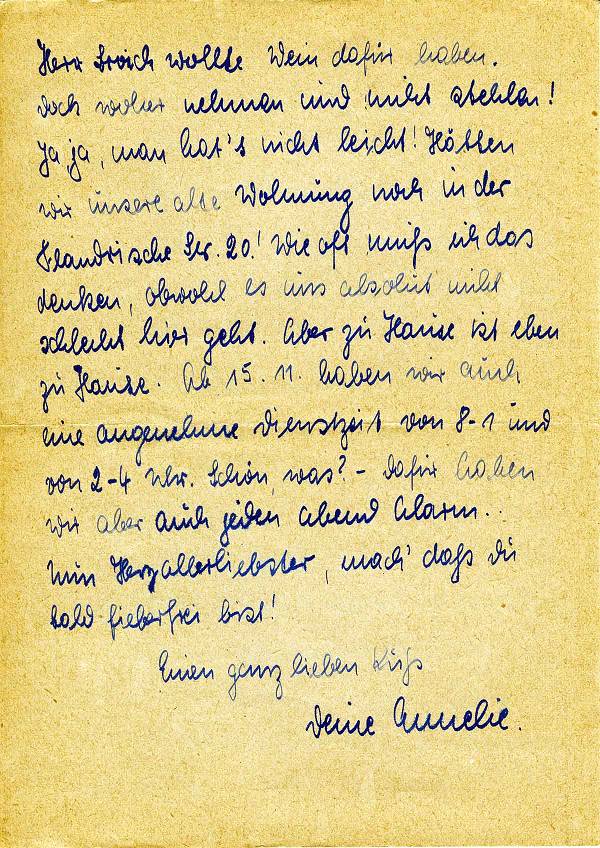 Herr Broich wollte Wein dafür haben.
Doch woher nehmen und nicht stehlen!
Ja, ja, man hat's nicht leicht! Hätten
wir unsere alte Wohnung noch in der
Flandrische Str. 20! Wie oft muß ich das
denken, obwohl es uns absolut nicht
schlecht hier geht. Aber zu Hause ist eben
zu Hause. Ab 15. 11. haben wir auch
eine angenehme Dienstzeit von 8-1 und
von 2-4 Uhr. Schön, was? - Dafür haben
wir aber auch jeden Abend Alarm..
Nun Herzallerliebster, mach' daß du
bald fieberfrei bist!
Einen ganz lieben Kuß
Deine Annelie.